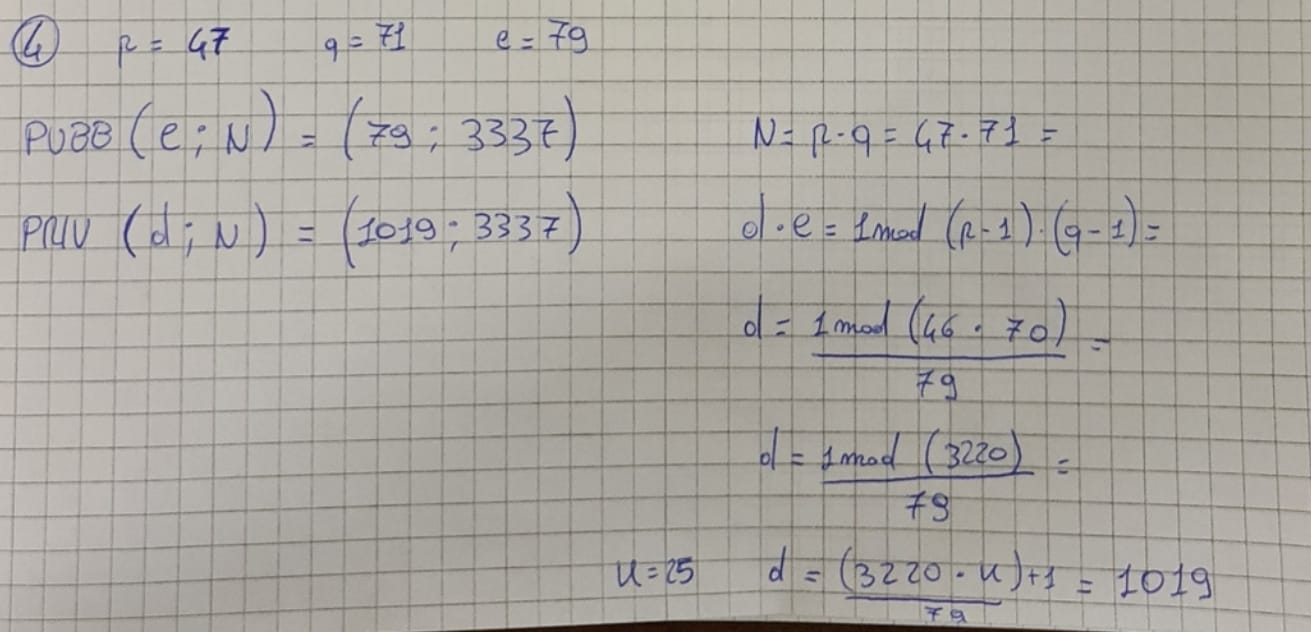 4 p = 47 q = 71 e = 79
PUBB (e ; N) = (79 ; 3337) N = p · q = 47 · 71 =
PRIV (d ; N) = (1019 ; 3337) d · e = 1 mod (p - 1) · (q - 1) =
d = 1 mod (46 · 70) =
79
d = 1 mod (3220) =
79
K = 25 d = (3220 · K) + 1 = 1019
79